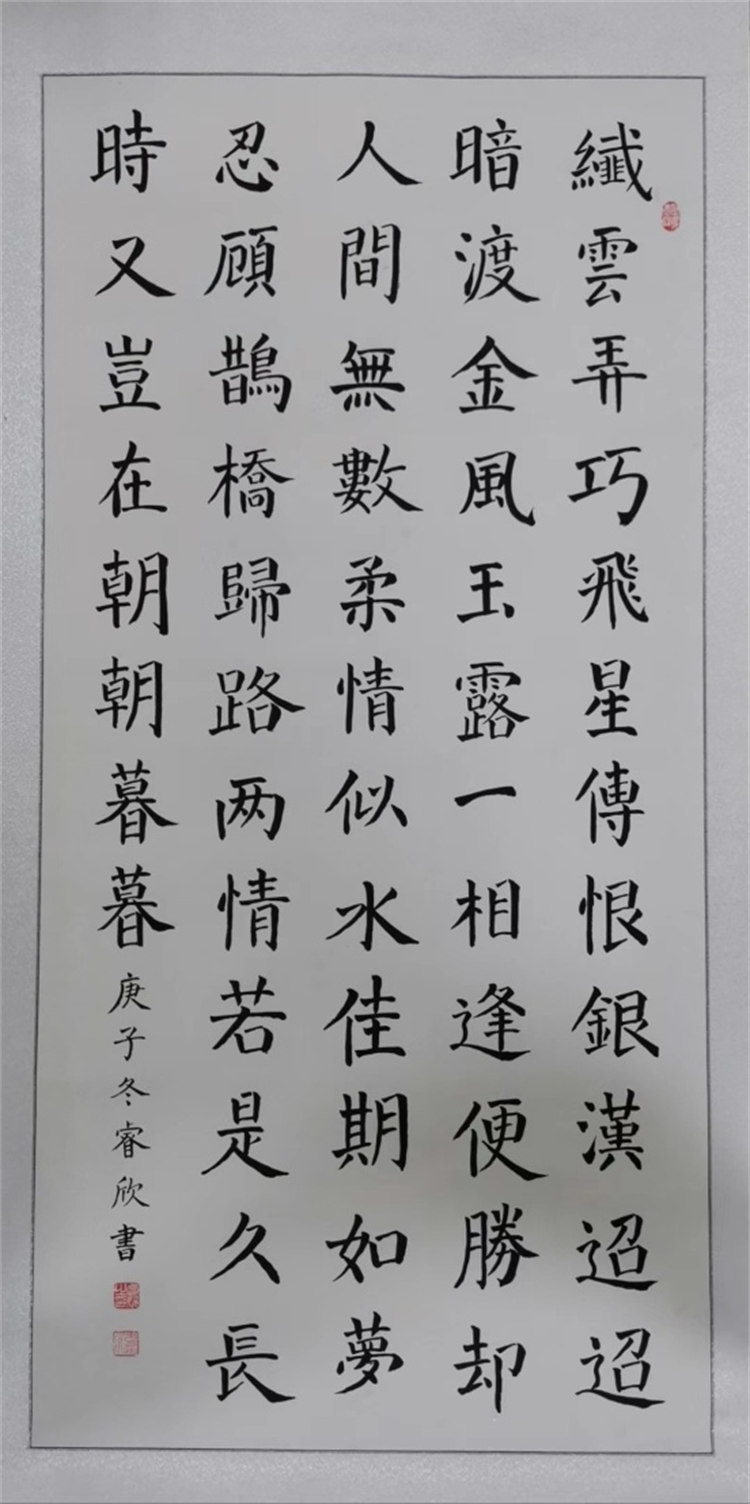 纖雲弄巧飛星傳恨銀漢迢迢
暗渡金風玉露一相逢便勝却
人間無數柔情似水佳期如夢
忍顧鵲橋歸路两情若是久長
時又豈在朝朝暮暮庚子冬睿欣書